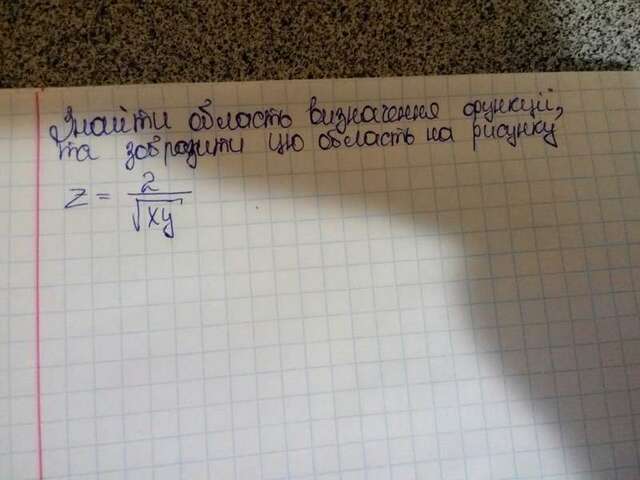 Знайти область визначення функції,
та зобразити цю область на рисунку
z = 2/√xy